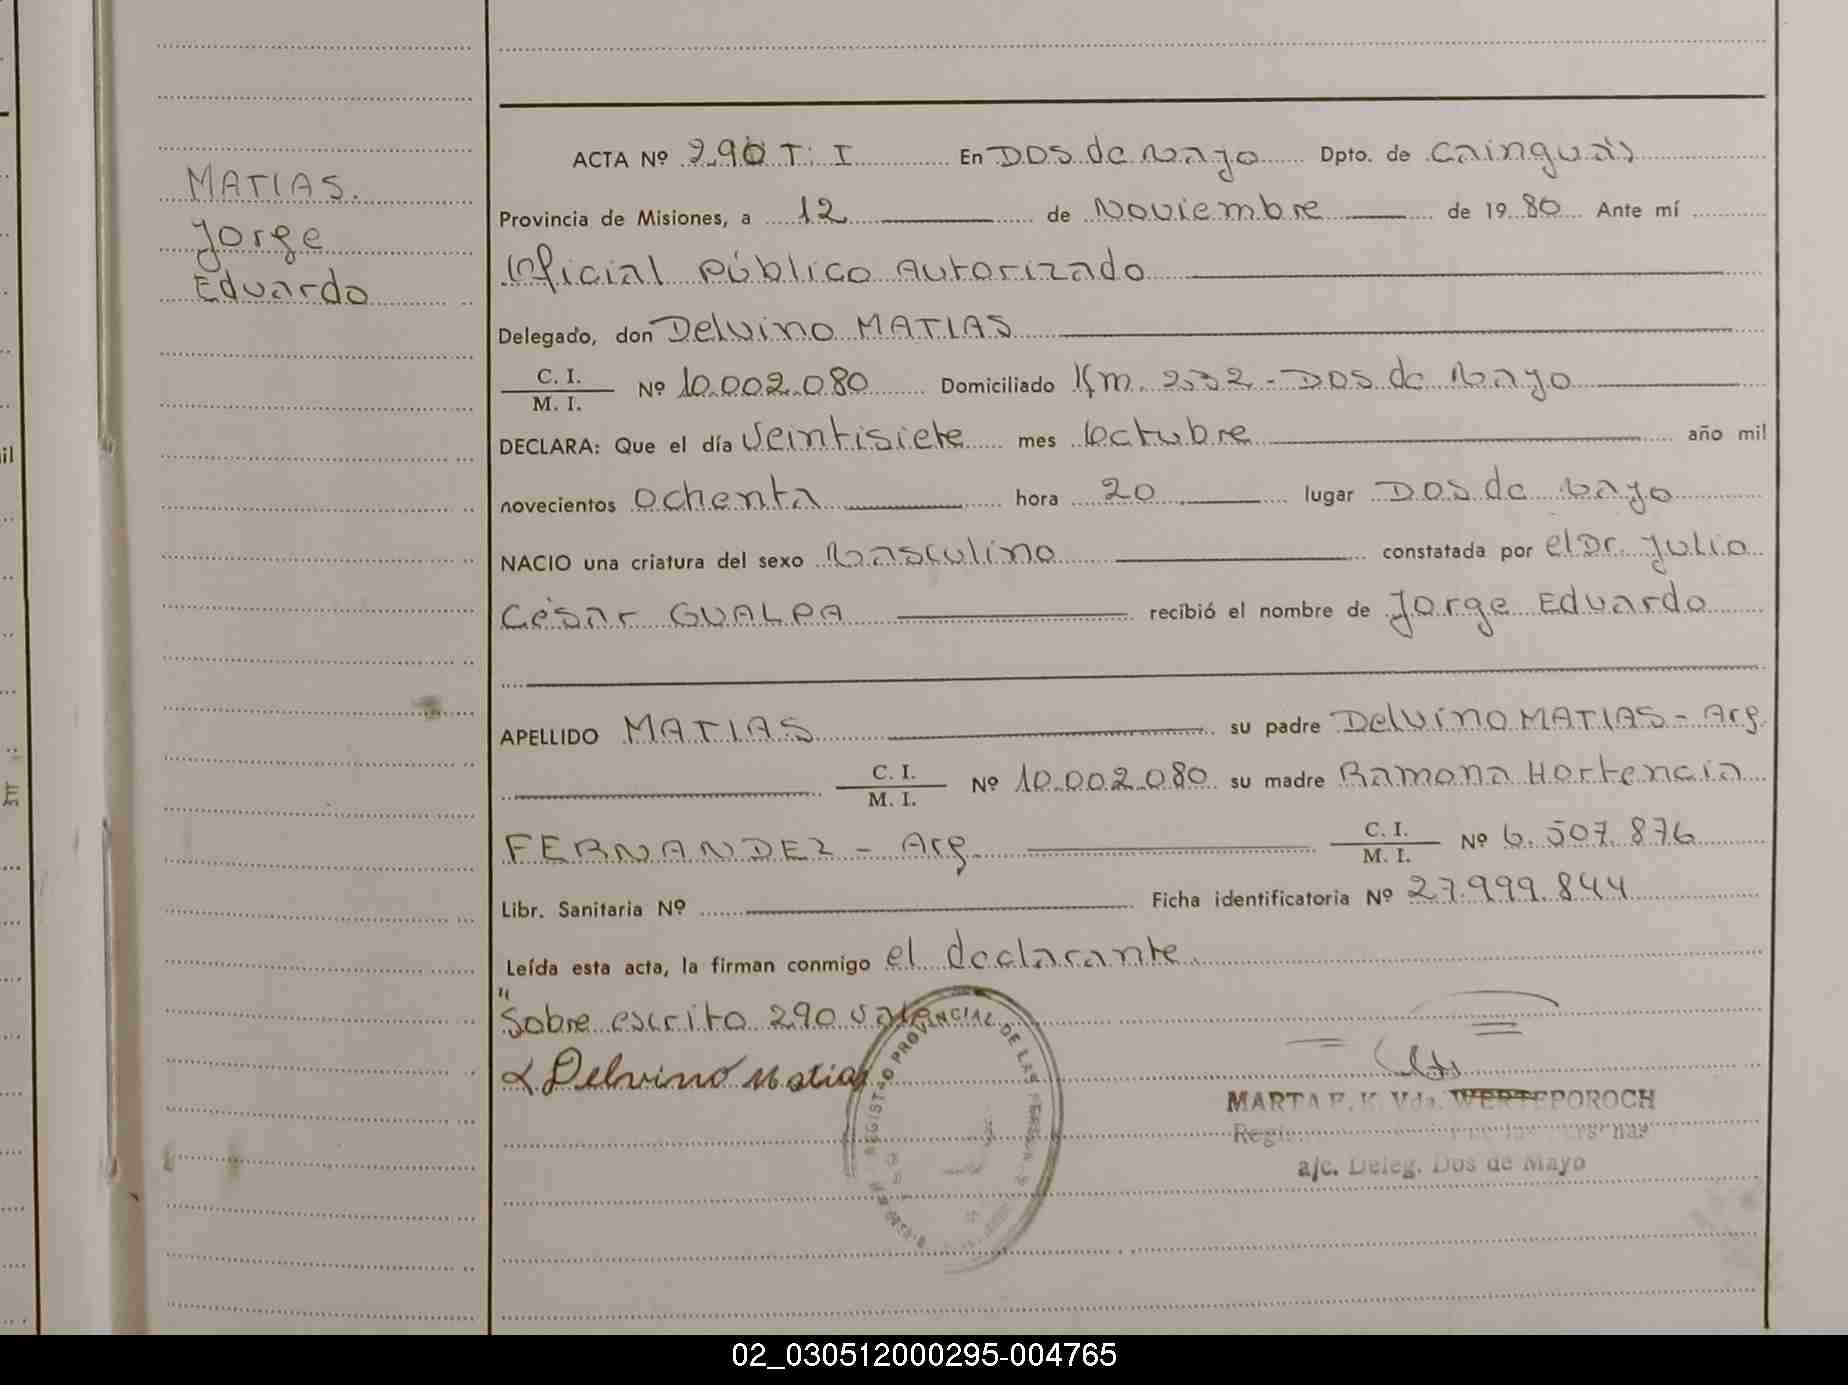 MATIAS.
Jorge
Eduardo
ACTA Nº 290 T. I En Dos de Mayo Dpto. de Cainguás
Provincia de Misiones, a 12 de Noviembre de 1980 Ante mí
Oficial Público Autorizado
Delegado, don Delvino MATIAS
C. I.
M. I. Nº 10.002.080 Domiciliado Km. 232 - Dos de Mayo
DECLARA: Que el día Veintisiete mes Octubre año mil
novecientos ochenta hora 20 lugar Dos de Mayo
NACIO una criatura del sexo Masculino constatada por el Dr. Julio
César GUALPA recibió el nombre de Jorge Eduardo
APELLIDO MATIAS su padre Delvino MATIAS - Arg.
C. I.
M. I. Nº 10.002.080 su madre Ramona Hortencia
FERNANDEZ - Arg. C. I.
M. I. Nº 6.507.876
Libr. Sanitaria Nº Ficha identificatoria Nº 27.999.844
Leída esta acta, la firman conmigo el declarante
"Sobre escrito 290 vale
Delvino Matias
REGISTRO PROVINCIAL DE LAS PERSONAS
MARTA F. K. Vda. WERTEPOROCH
a/c. Deleg. Dos de Mayo
il
02_030512000295-004765